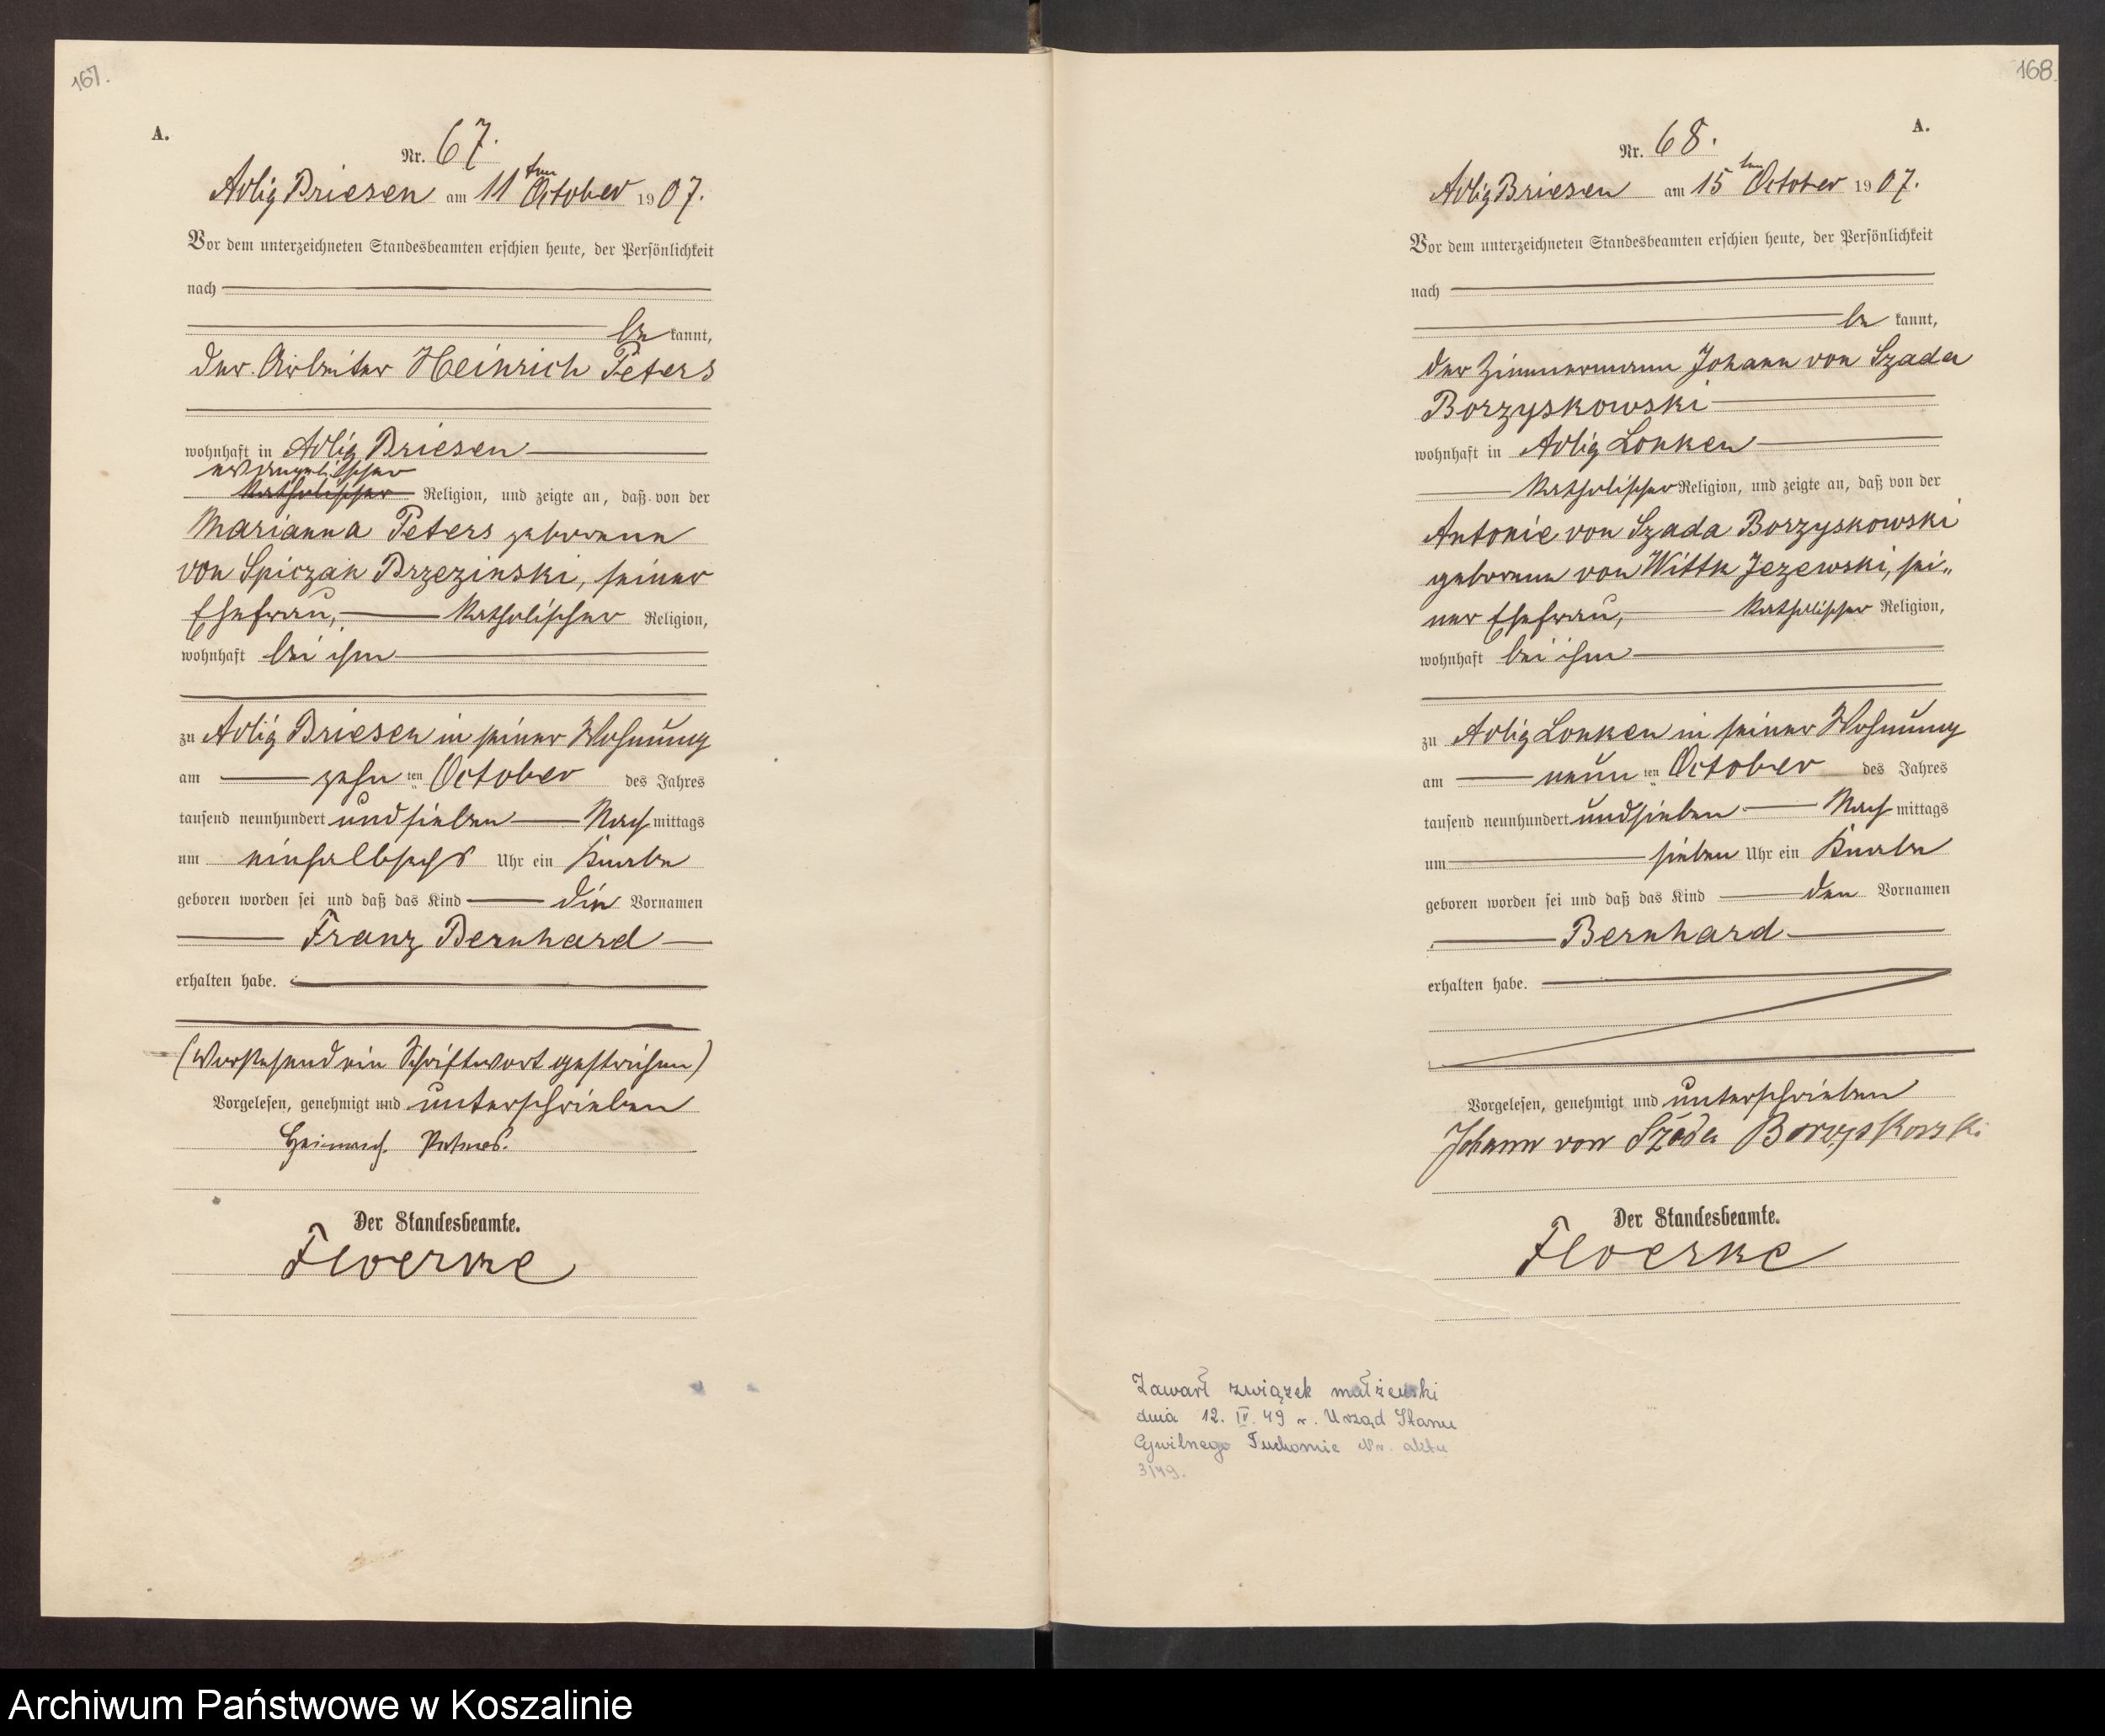 167.
A.
Nr. 67.
Adlig Briesen am 11ten October 1907.
Vor dem unterzeichneten Standesbeamten erschien heute, der Persönlichkeit
nach
be kannt,
der Arbeiter Heinrich Peters
wohnhaft in Adlig Briesen
evangelischer
katholischer Religion, und zeigte an, daß von der
Marianna Peters geborene
von Spiczak Brzezinski, seiner
Ehefrau, katholischer Religion,
wohnhaft bei ihm
zu Adlig Briesen in seiner Wohnung
am zehn ten October des Jahres
tausend neunhundert und sieben Nach mittags
um einhalbsechs Uhr ein Knabe
geboren worden sei und daß das Kind die Vornamen
Franz Bernhard
erhalten habe.
(Vorstehend ein Schriftwort gestrichen)
Vorgelesen, genehmigt und unterschrieben
Heinrich Peters.
Der Standesbeamte.
Floerke
168.
A.
Nr. 68.
Adlig Briesen am 15ten October 1907.
Vor dem unterzeichneten Standesbeamten erschien heute, der Persönlichkeit
nach
be kannt,
der Zimmermann Johann von Szada
Borzyskowski
wohnhaft in Adlig Lonken
katholischer Religion, und zeigte an, daß von der
Antonie von Szada Borzyskowski
geborene von Wittk Jezewski, sei„
ner Ehefrau, katholischer Religion,
wohnhaft bei ihm
zu Adlig Lonken in seiner Wohnung
am neun ten October des Jahres
tausend neunhundert und sieben Nach mittags
um sieben Uhr ein Knabe
geboren worden sei und daß das Kind den Vornamen
Bernhard
erhalten habe.
Vorgelesen, genehmigt und unterschrieben
Johann von Szada Borzyskowski
Der Standesbeamte.
Floerke
Zawarł związek małżeński
dnia 12. IV. 49 r. Urząd Stanu
Cywilnego Tuchomie Nr. aktu
3/49.
Archiwum Państwowe w Koszalinie